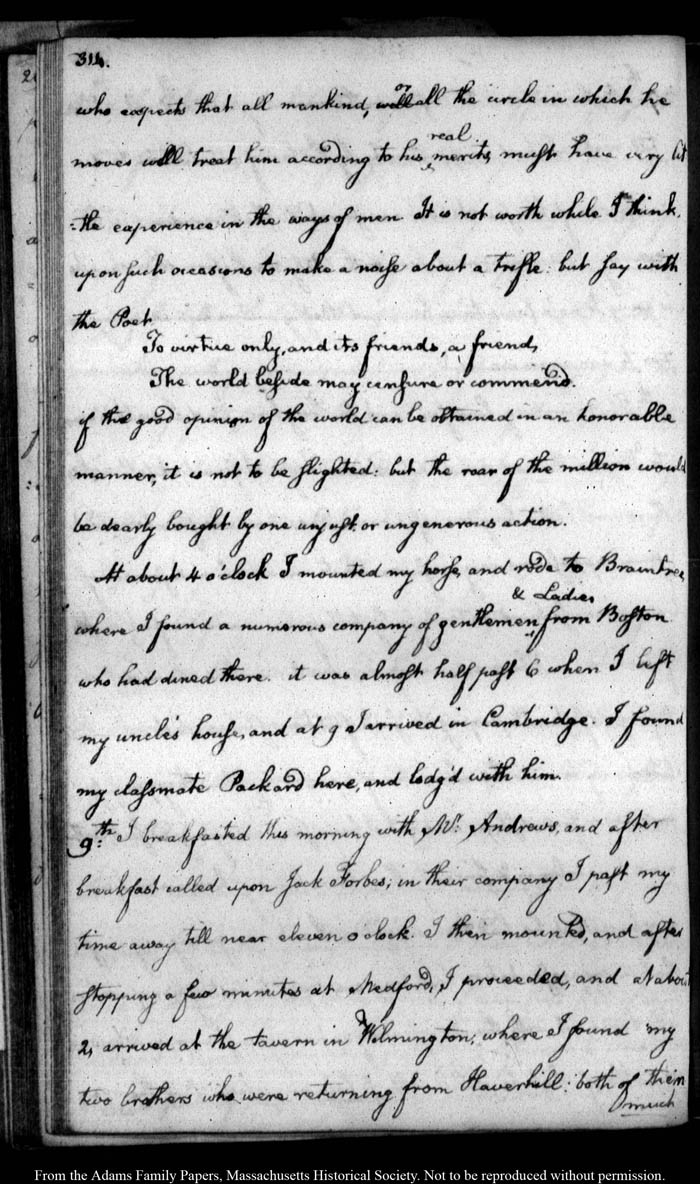 314.
who expects that all mankind, or all the circle in which he
moves will treat him according to his real merits, must have very lit
:tle experience in the ways of men. It is not worth while I think,
upon such occasions to make a noise about a trifle: but say with
the Poet
To virtue only, and its friends, a friend,
The world beside may censure or commend.
if the good opinion of the world can be obtained in an honorable
manner, it is not to be slighted: but the roar of the million would
be dearly bought by one unjust, or ungenerous action.
At about 4 o'clock I mounted my horse, and rode to Braintree,
where I found a numerous company of gentlemen & Ladies from Boston
who had dined there. it was almost half past 6 when I left
my uncle's house, and at 9 I arrived in Cambridge. I found
my classmate Packard here, and lodg'd with him.
9th: I breakfasted this morning with Mr: Andrews, and after
breakfast called upon Jack Forbes; in their company I past my
time away till near eleven o'clock. I then mounted, and after
stopping a few minutes at Medford, I proceeded, and at about
2, arrived at the tavern in Wilmington; where I found my
two brothers who were returning from Haverhill: both of them
much
From the Adams Family Papers, Massachusetts Historical Society. Not to be reproduced without permission.